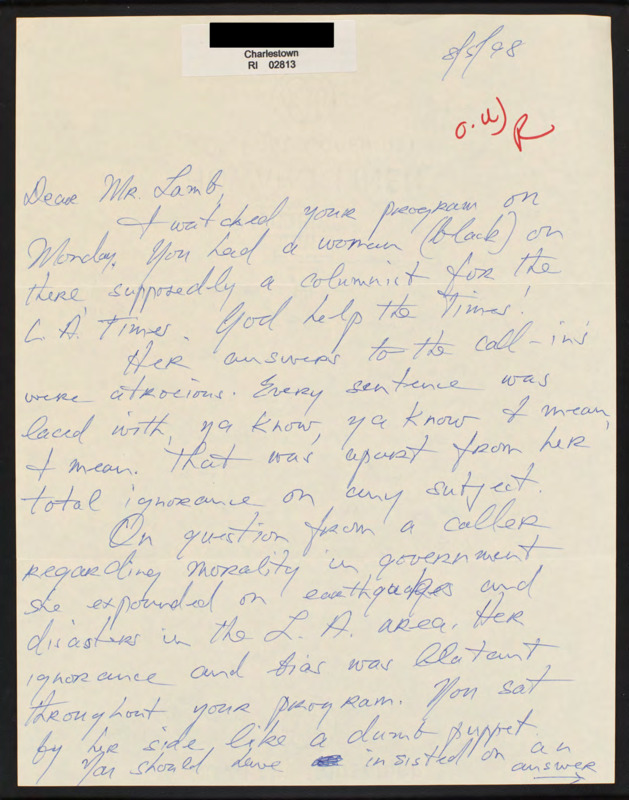 Charlestown
RI 02813
8/5/98
o.w) R
Dear Mr. Lamb,
I watched your program on
Monday. You had a woman (black) on
there supposedly a columnist for the
L.A. Times. God help the Times!
Her answers to the call-ins
were atrocious. Every sentence was
laced with, ya know, ya know I mean,
I mean. That was apart from her
total ignorance on any subject.
On question from a caller
regarding morality in government
she expounded on earthquakes and
disasters in the L.A. area. Her
ignorance and bias was blatant
throughout your program. You sat
by her side like a dumb puppet.
You should have insisted on an
answer